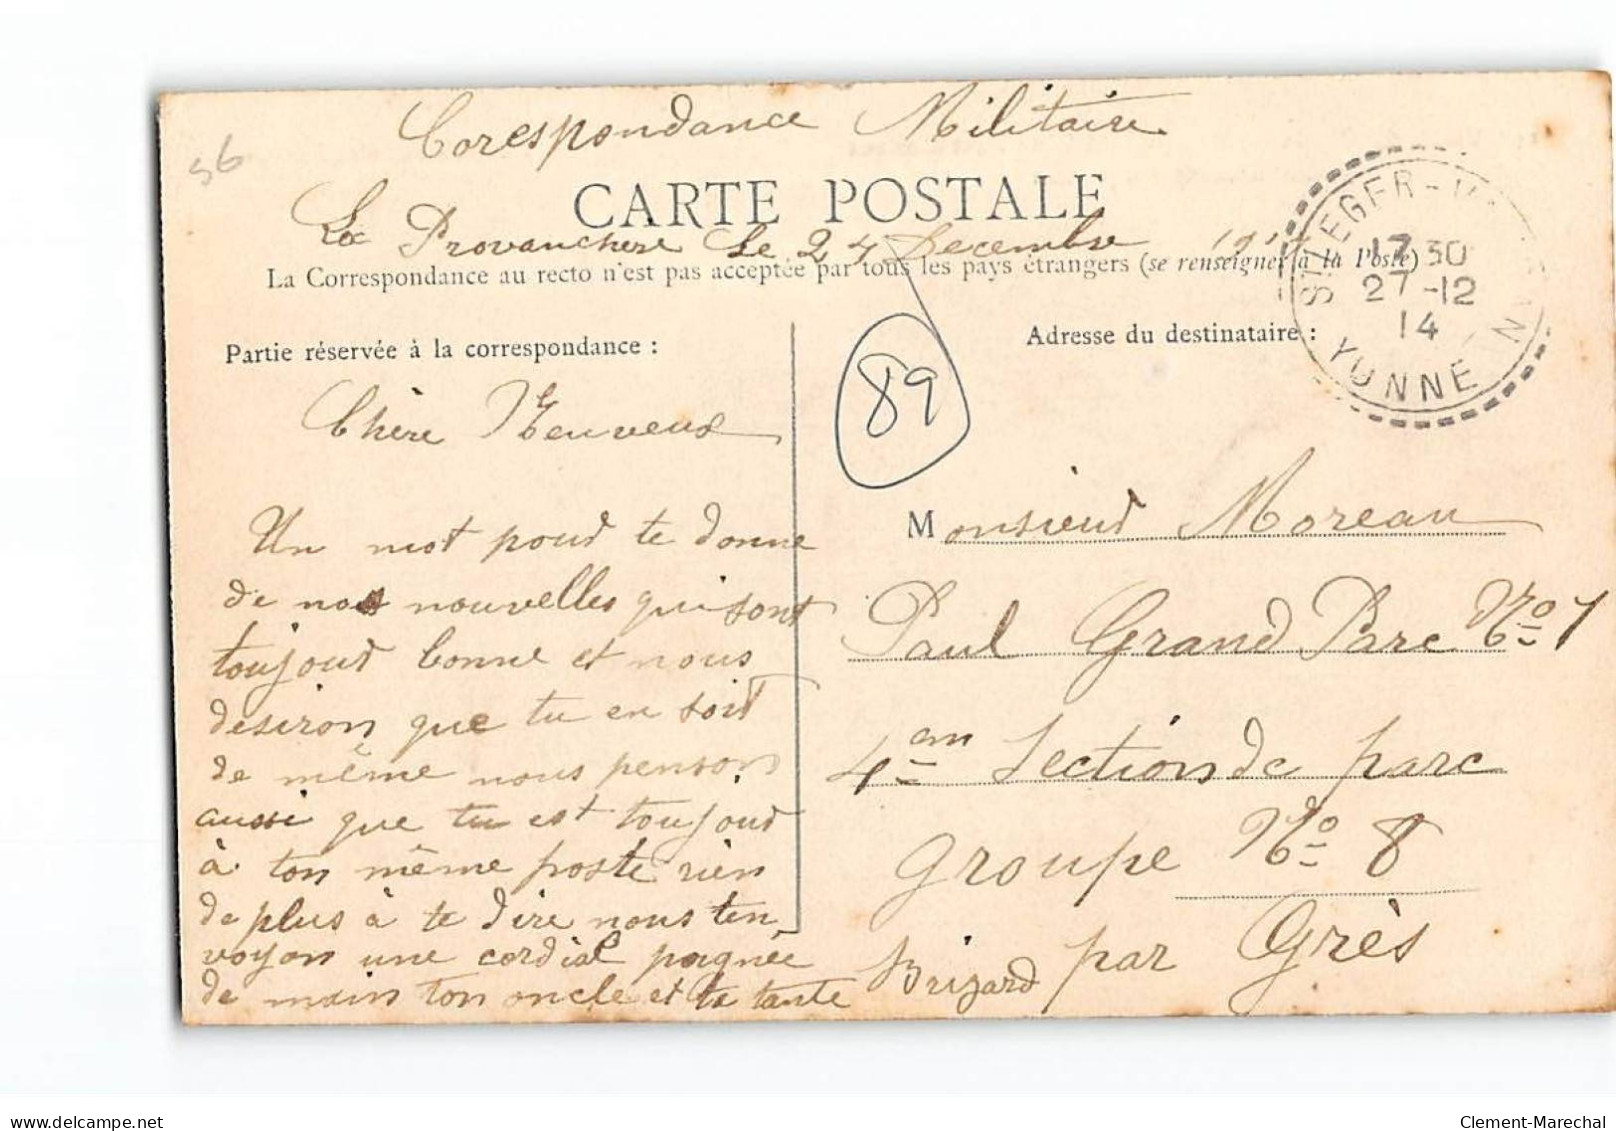 56
Corespondance Militaire
CARTE POSTALE
La Provanchere le 24 Decembre 191
La Correspondance au recto n'est pas acceptée par tous les pays étrangers (se renseigner à la Poste)
ST LEGER-V
17 30
27-12
14
YONNE
Partie réservée à la correspondance :
Adresse du destinataire :
89
Chère Neuveux
Un mot pour te donne
de nos nouvelles qui sont
toujour bonne et nous
desiron que tu en soit
de même nous penson
aussi que tu est toujour
à ton même poste rien
de plus à te dire nous ten
voyon une cordial pognée
de main ton oncle et ta tante Brizard
Monsieur Moreau
Paul Grand Parc No 1
4em Section de parc
groupe No 8
par Grès
delcampe.net
Clement-Marechal